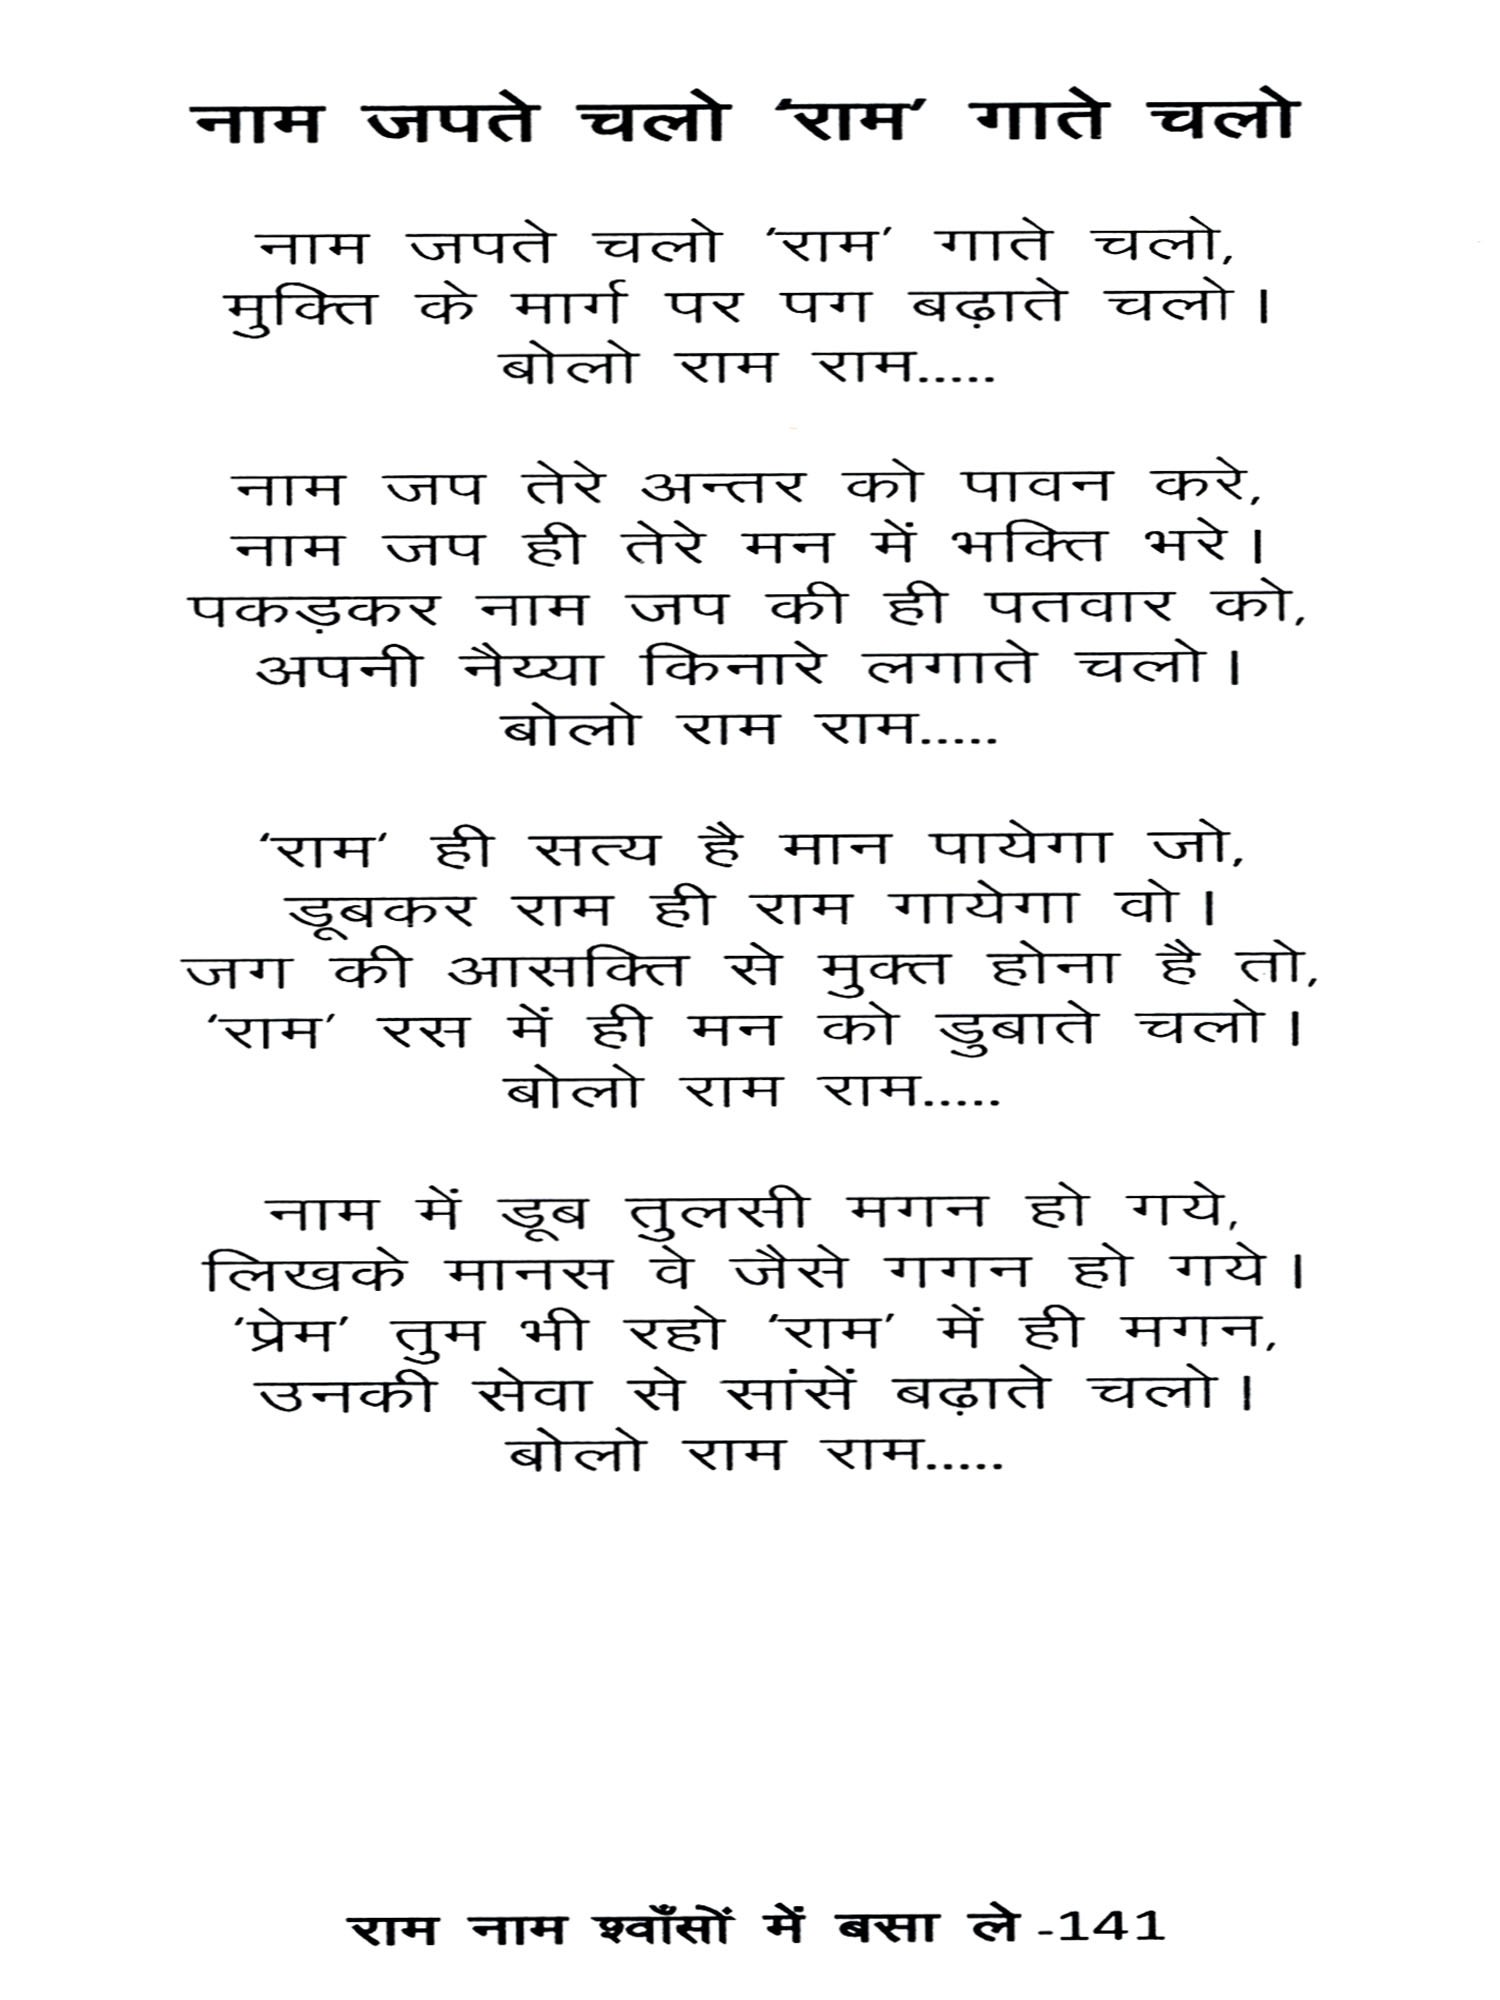 नाम जपते चलो ‘राम’ गाते चलो
नाम जपते चलो ‘राम’ गाते चलो,
मुक्ति के मार्ग पर पग बढ़ाते चलो।
बोलो राम राम.....
नाम जप तेरे अन्तर को पावन करे,
नाम जप ही तेरे मन में भक्ति भरे।
पकड़कर नाम जप की ही पतवार को,
अपनी नैय्या किनारे लगाते चलो।
बोलो राम राम.....
‘राम’ ही सत्य है मान पायेगा जो,
डूबकर राम ही राम गायेगा वो।
जग की आसक्ति से मुक्त होना है तो,
‘राम’ रस में ही मन को डुबाते चलो।
बोलो राम राम.....
नाम में डूब तुलसी मगन हो गये,
लिखके मानस वे जैसे गगन हो गये।
‘प्रेम’ तुम भी रहो ‘राम’ में ही मगन,
उनकी सेवा से सांसें बढ़ाते चलो।
बोलो राम राम.....
राम नाम श्वाँसों में बसा ले -141